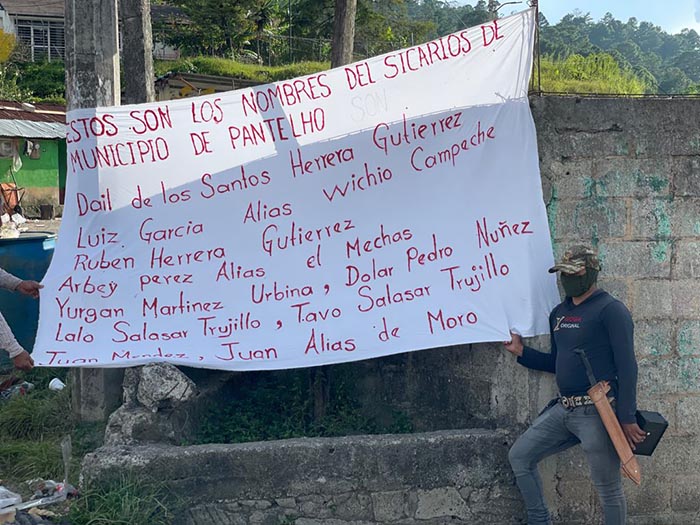 ESTOS SON LOS NOMBRES DEL SICARIOS DE
MUNICIPIO DE PANTELHO SON
Dail de los Santos Herrera Gutierrez
Luiz Garcia Alias Wichio Campeche
Ruben Herrera Gutierrez
Arbey perez Alias el Mechas
Yurgan Martinez Urbina, Dolar Pedro Nuñez
Lalo Salasar Trujillo, Tavo Salasar Trujillo
Juan Mendez, Juan Alias de Moro
ORIGINAL